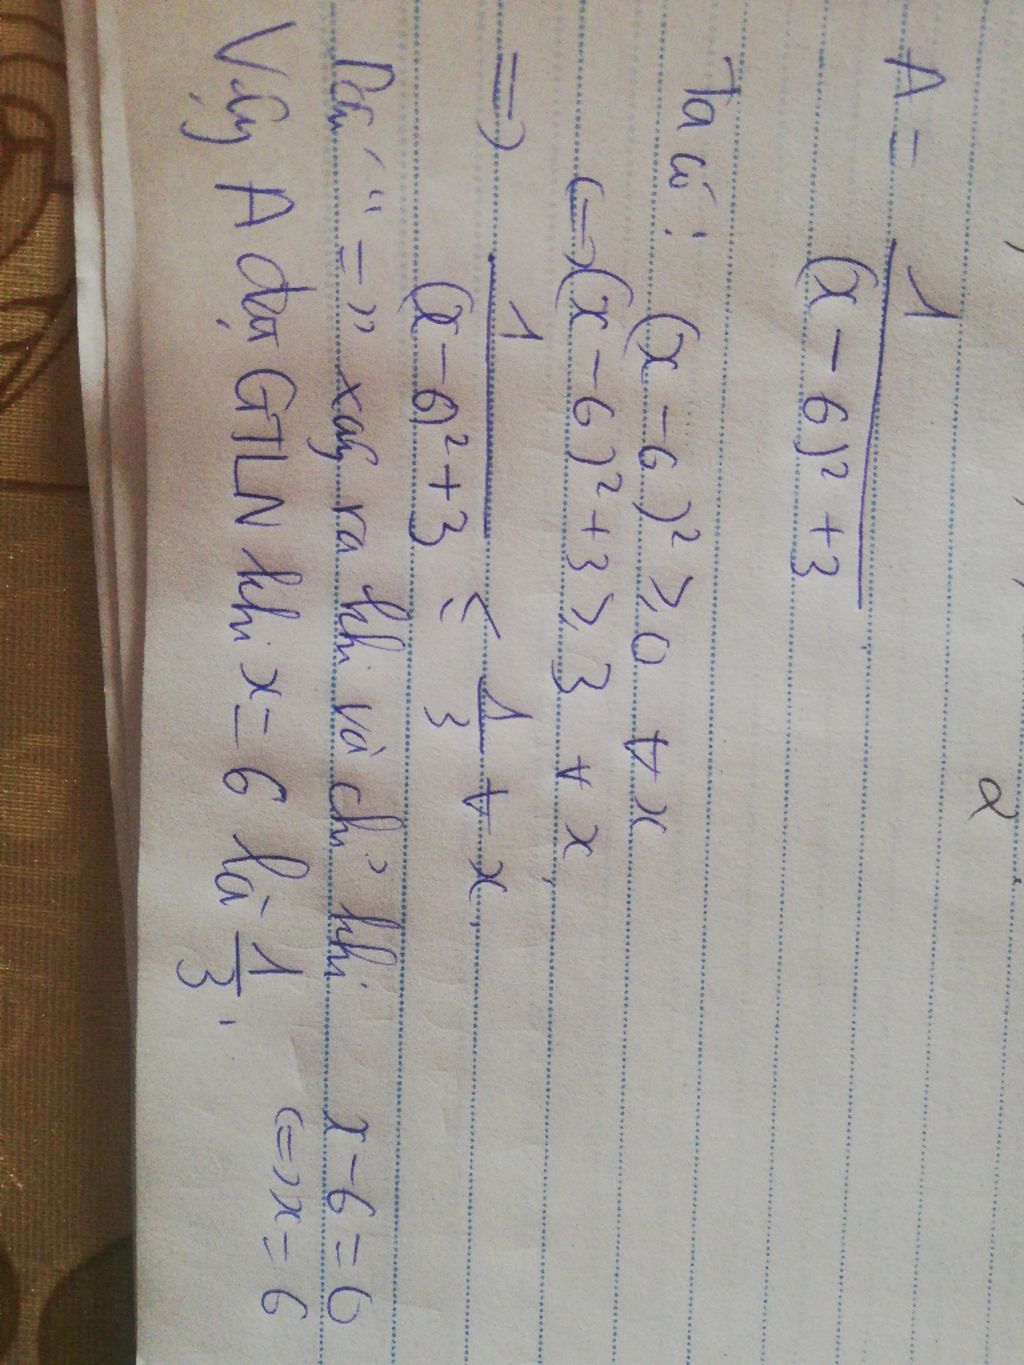 A = 1/((x - 6)² + 3)
Ta có: (x - 6)² ≥ 0 ∀ x
(=) (x - 6)² + 3 ≥ 3 ∀ x
=) 1/((x - 6)² + 3) ≤ 1/3 ∀ x.
Dấu "=" xảy ra khi và chỉ khi x - 6 = 6
(=) x = 6
Vậy A đạt GTLN khi x = 6 là 1/3.